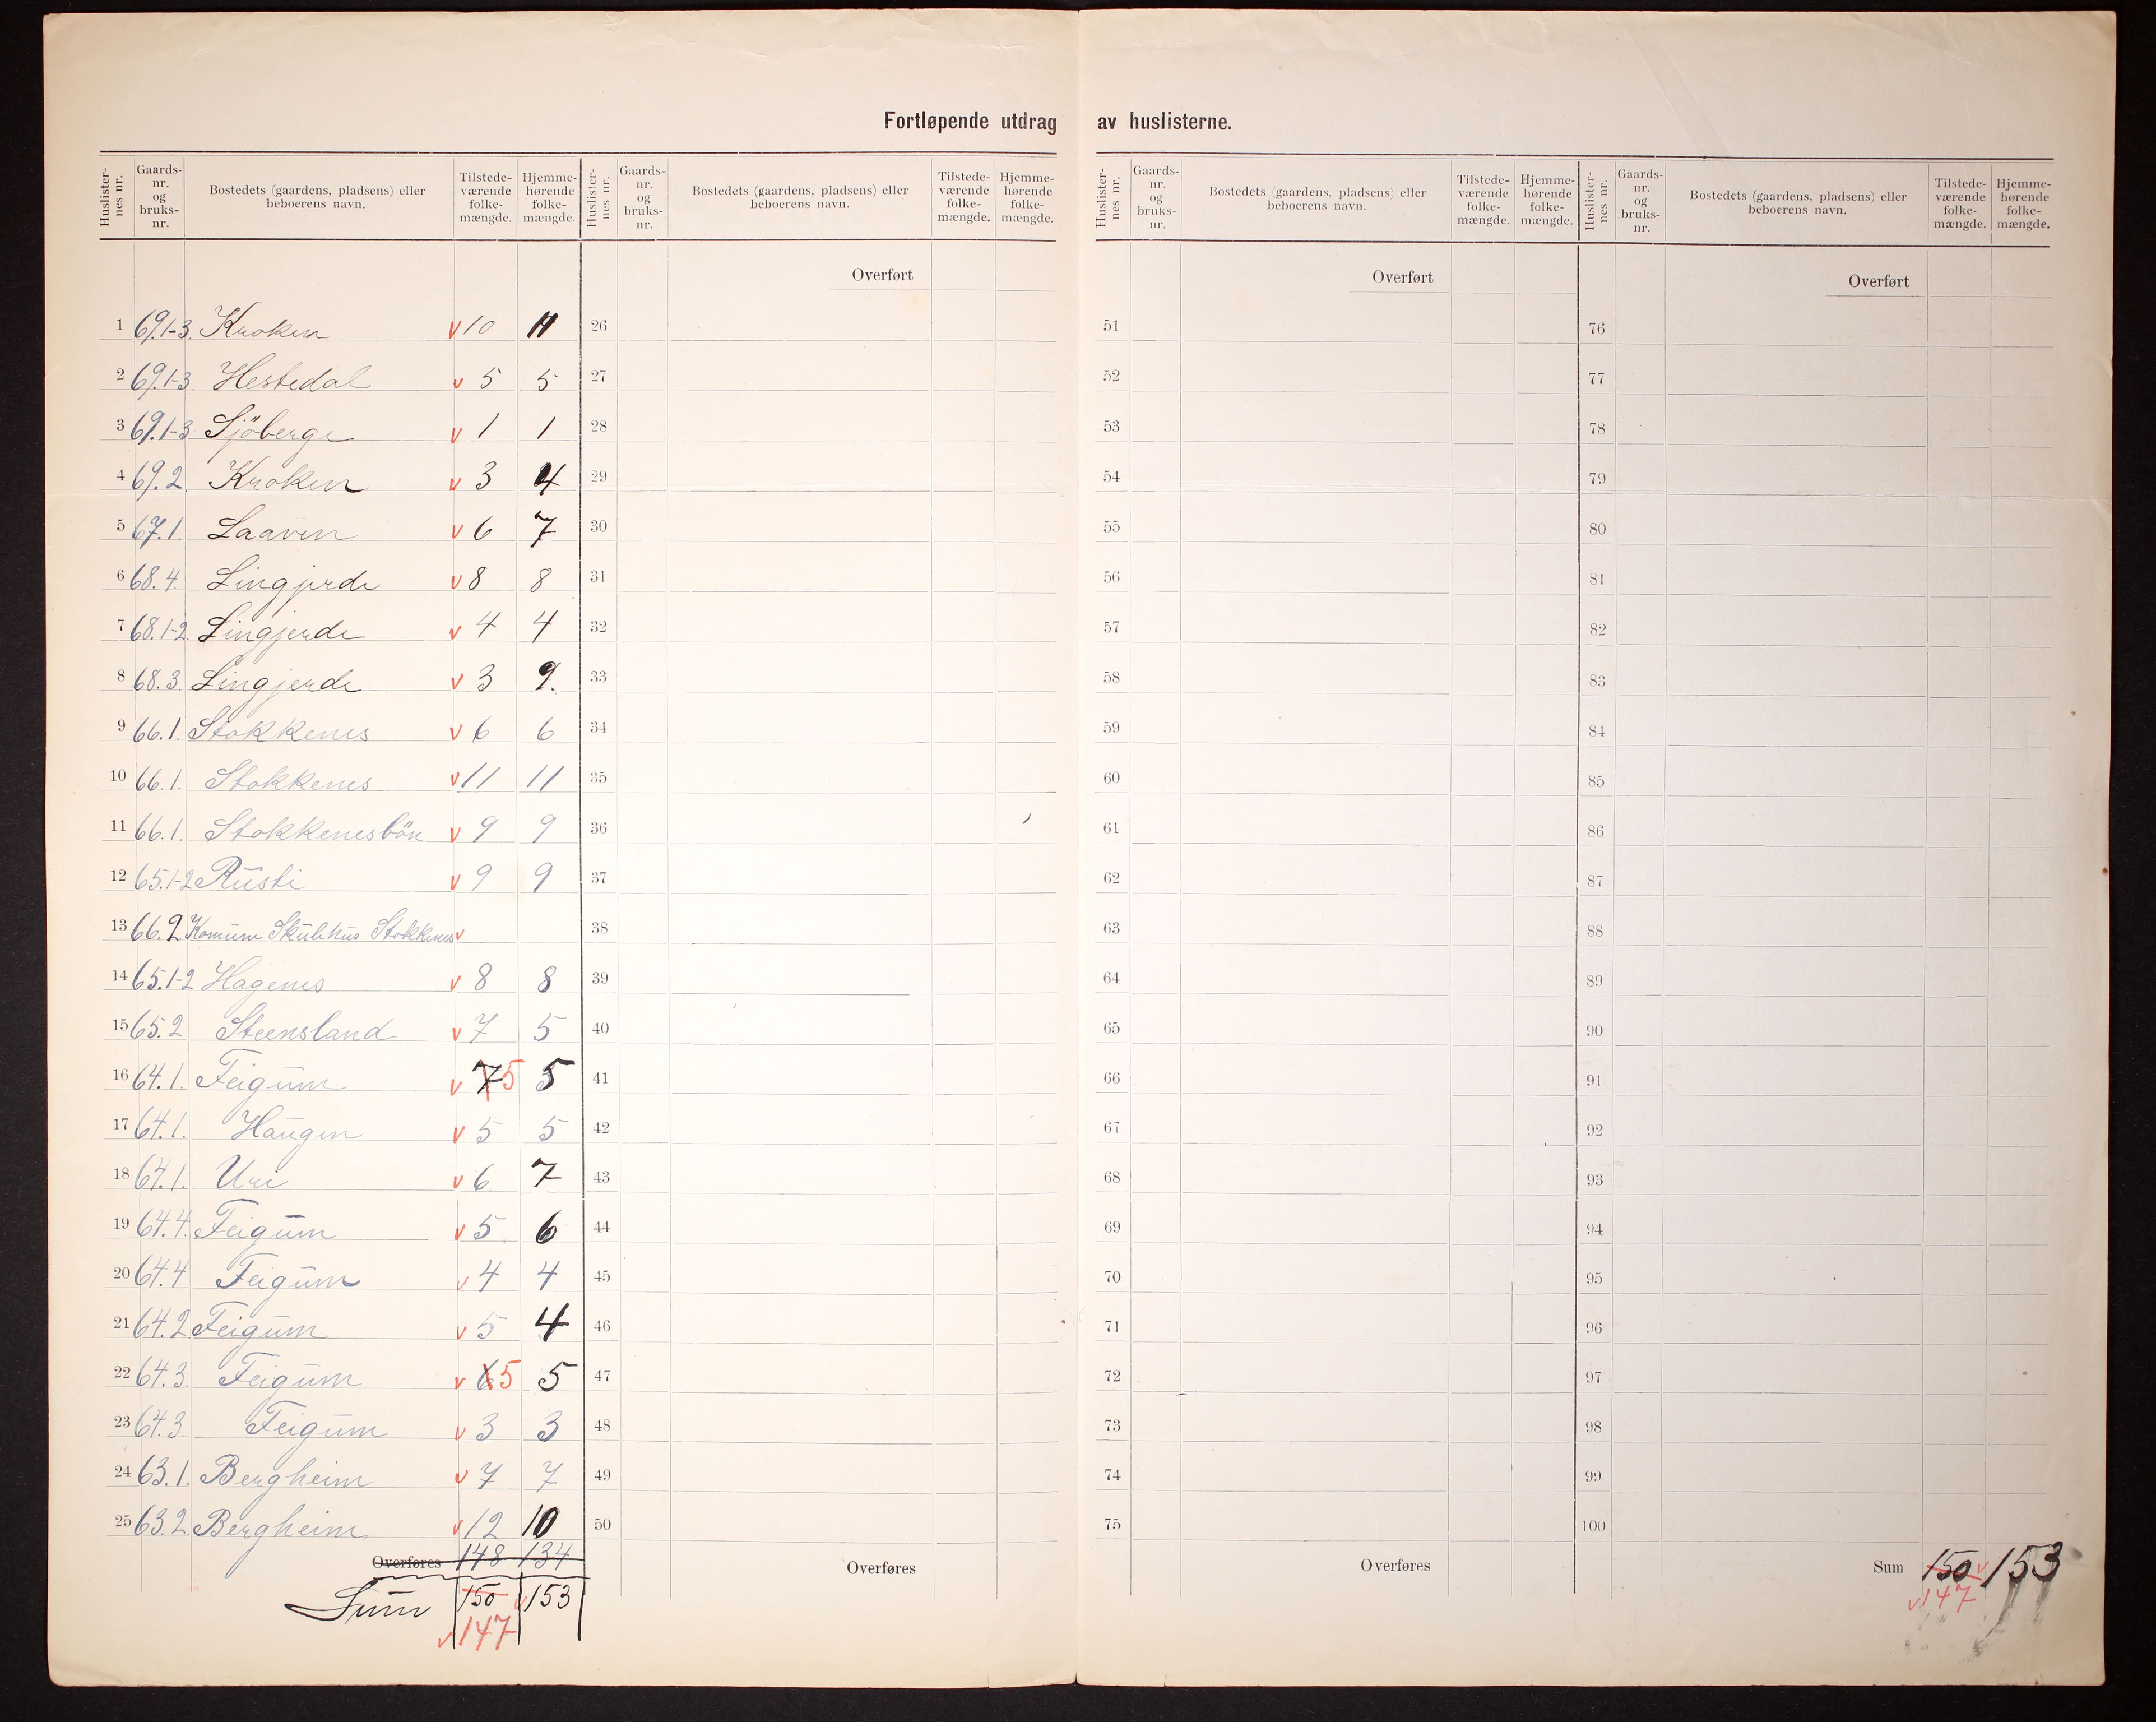 Fortløpende utdrag av huslisterne.
Huslisternes nr. Gaards-nr. og bruks-nr. Bostedets (gaardens, pladsens) eller beboerens navn. Tilstede-værende folke-mængde. Hjemme-hørende folke-mængde. Huslister-nes nr. Gaards-nr. og bruks-nr. Bostedets (gaardens, pladsens) eller beboerens navn. Tilstede-værende folke-mængde. Hjemme-hørende folke-mængde. Huslister-nes nr. Gaards-nr. og bruks-nr. Bostedets (gaardens, pladsens) eller beboerens navn. Tilstede-værende folke-mængde. Hjemme-hørende folke-mængde. Huslister-nes nr. Gaards-nr. og bruks-nr. Bostedets (gaardens, pladsens) eller beboerens navn. Tilstede-værende folke-mængde. Hjemme-hørende folke-mængde.
Overført Overført Overført
1 69.1-3 Kroken v 10 11 26 51 76
2 69.1-3. Hestedal v 5 5 27 52 77
3 69.1-3 Sjöberge v 1 1 28 53 78
4 69.2. Kroken v 3 4 29 54 79
5 67.1. Laaven v 6 7 30 55 80
6 68.4. Lingjerde v 8 8 31 56 81
7 68.1-2. Lingjerde v 4 4 32 57 82
8 68.3. Lingjerde v 3 9. 33 58 83
9 66.1. Stokkenes v 6 6 34 59 84
10 66.1. Stokkenes v 11 11 35 60 85
11 66.1. Stokkenesbön v 9 9 36 61 86
12 65.1-2 Rusti v 9 9 37 62 87
13 66.2 Komune Skulehus Stokkenes v 38 63 88
14 65.1-2 Hagenes v 8 8 39 64 89
15 65.2 Steensland v 7 5 40 65 90
16 64.1. Feigum v 7 5 5 41 66 91
17 64.1. Haugen v 5 5 42 67 92
18 64.1. Uri v 6 7 43 68 93
19 64.4. Feigum v 5 6 44 69 94
20 64.4 Feigum v 4 4 45 70 95
21 64.2 Feigum v 5 4 46 71 96
22 64.3. Feigum v 6 5 5 47 72 97
23 64.3. Feigum v 3 3 48 73 98
24 63.1. Bergheim v 7 7 49 74 99
25 63.2 Bergheim v 12 10 50 75 100
Overføres 148 134 Overføres Overføres Sum 150 v 153
Sum 150 v 153 v 147
v 147